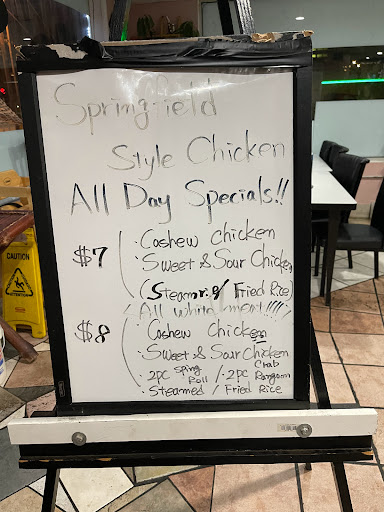 Springfield
Style Chicken
All Day Specials!!
$7
· Cashew Chicken
· Sweet & Sour Chicken
(Steam r. / Fried Rice)
All white meat!!!!
$8
· Cashew Chicken
· Sweet & Sour Chicken
· 2pc Spring Roll / 2pc Crab Rangoon
· Steamed / Fried Rice
CAUTION